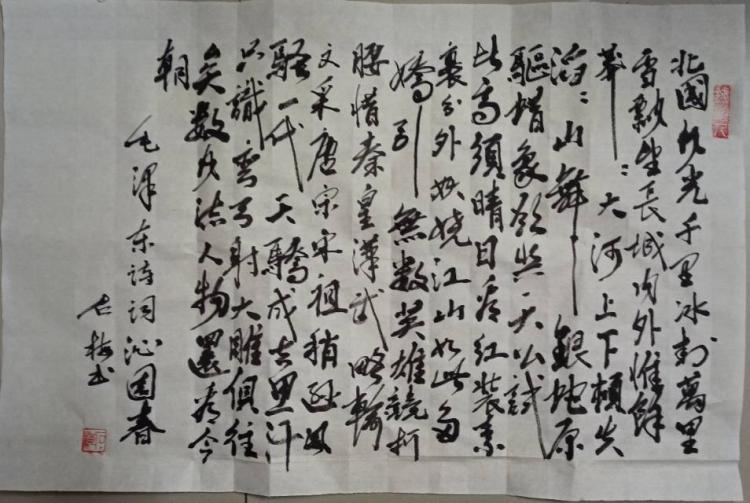 北國风光千里冰封萬里
雪飘望長城内外惟餘
莽:大河上下頓失
滔:山舞銀蛇原
驅蜡象欲與天公試
比高須晴日看红装素
裹分外妖娆江山如此多
嬌引無数英雄競折
腰惜秦皇漢武略輸
文采唐宗宋祖稍逊风
騷一代天驕成吉思汗
只識弯弓射大雕俱往
矣数风流人物還看今
朝
毛泽东诗词沁园春
梅书